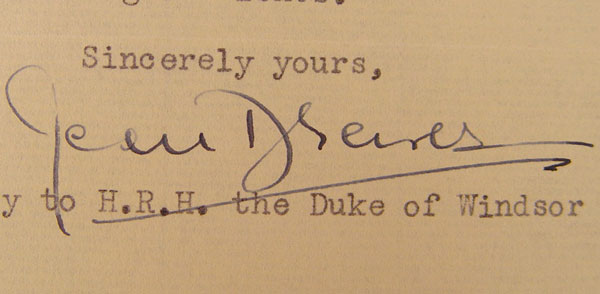 Sincerely yours,
Jean Drewes
y to H.R.H. the Duke of Windsor